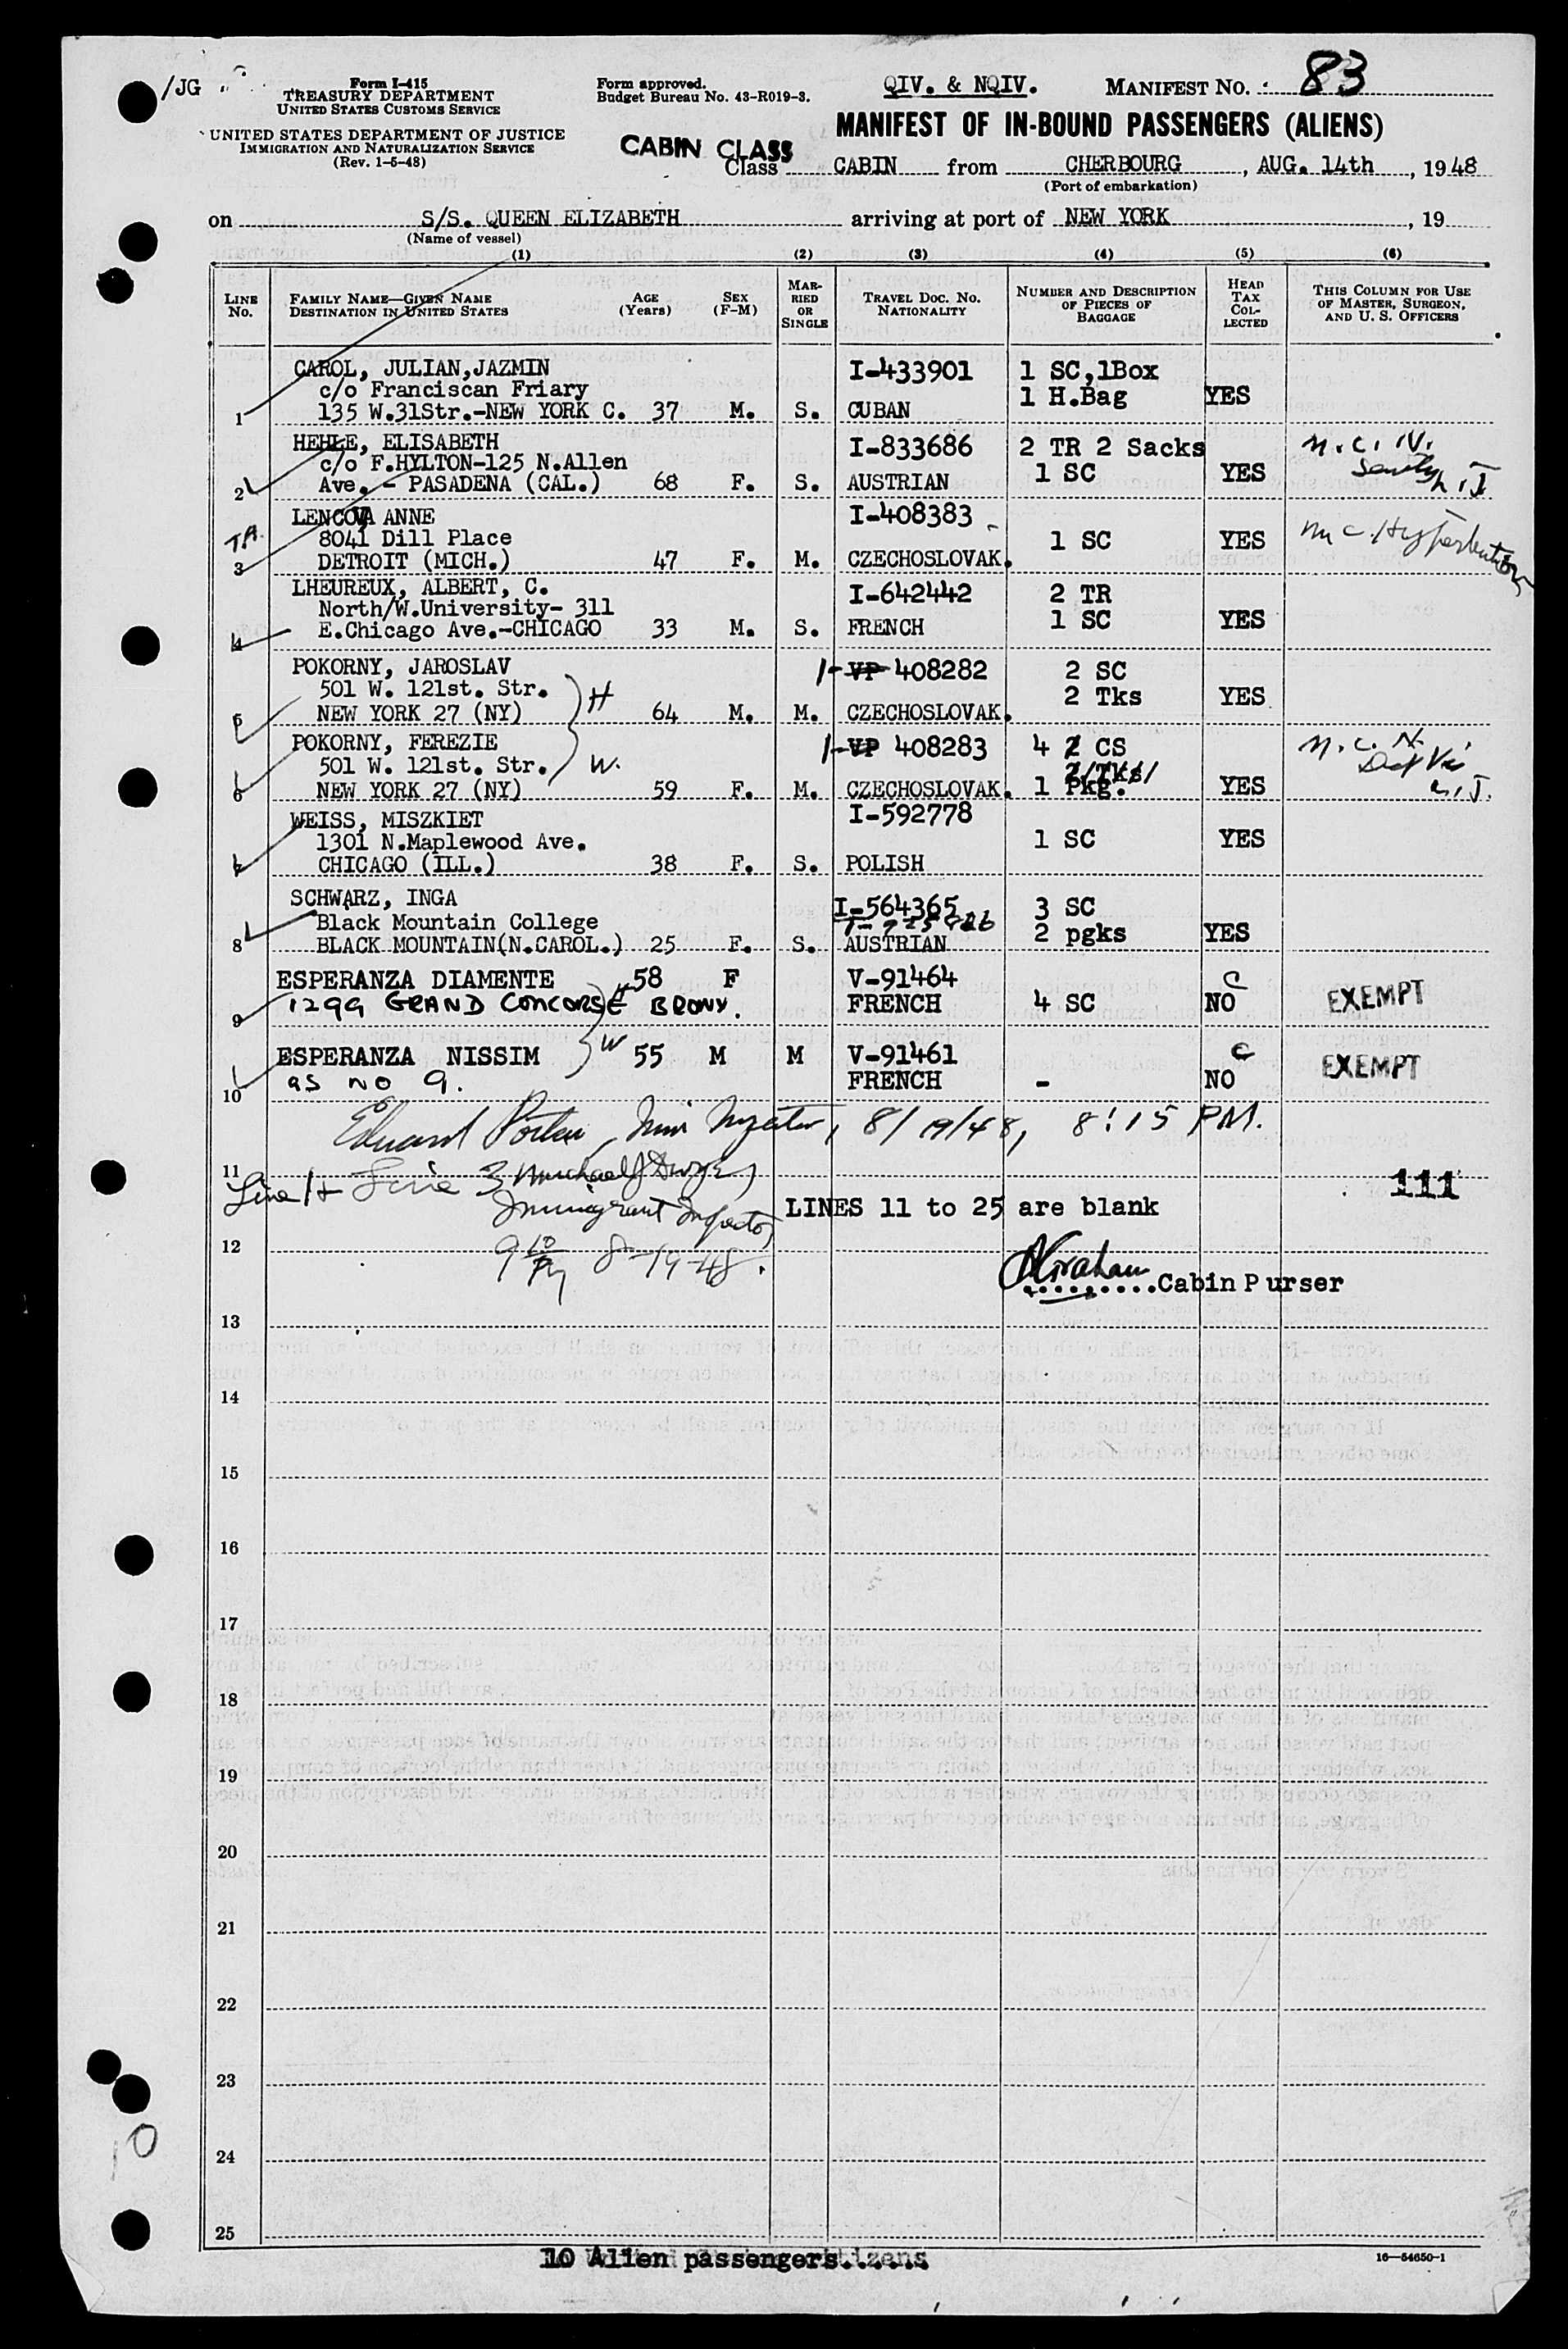 /JG
Form I-415
TREASURY DEPARTMENT
UNITED STATES CUSTOMS SERVICE
UNITED STATES DEPARTMENT OF JUSTICE
IMMIGRATION AND NATURALIZATION SERVICE
(Rev. 1-6-48)
Form approved.
Budget Bureau No. 43-R019-3.
QIV. & NQIV.
MANIFEST NO. 83
MANIFEST OF IN-BOUND PASSENGERS (ALIENS)
CABIN CLASS
Class CABIN from CHERBOURG, AUG. 14th, 1948
(Port of embarkation)
on S/S. QUEEN ELIZABETH arriving at port of NEW YORK, 19
(Name of vessel)
(1) (2) (3) (4) (5) (6)
LINE No.
FAMILY NAME—GIVEN NAME
DESTINATION IN UNITED STATES
AGE (Years)
SEX (F-M)
MARRIED OR SINGLE
TRAVEL DOC. NO.
NATIONALITY
NUMBER AND DESCRIPTION OF PIECES OF BAGGAGE
HEAD TAX COLLECTED
THIS COLUMN FOR USE OF MASTER, SURGEON, AND U. S. OFFICERS
CAROL, JULIAN,JAZMIN I-433901 1 SC,1Box
c/o Franciscan Friary 1 H.Bag YES
1 135 W.31Str.-NEW YORK C. 37 M. S. CUBAN
HEHLE, ELISABETH I-833686 2 TR 2 Sacks
c/o F.HYLTON-125 N.Allen 1 SC YES
2 Ave. - PASADENA (CAL.) 68 F. S. AUSTRIAN
LENCOVA ANNE I-408383
8041 Dill Place 1 SC YES
3 DETROIT (MICH.) 47 F. M. CZECHOSLOVAK.
LHEUREUX, ALBERT, C. I-642442 2 TR
North/W.University- 311 1 SC YES
4 E.Chicago Ave.-CHICAGO 33 M. S. FRENCH
POKORNY, JAROSLAV I-VP 408282 2 SC
501 W. 121st. Str. H 2 Tks YES
5 NEW YORK 27 (NY) 64 M. M. CZECHOSLOVAK.
POKORNY, FEREZIE I-VP 408283 4 2 CS
501 W. 121st. Str. W. 2/Tks/
6 NEW YORK 27 (NY) 59 F. M. CZECHOSLOVAK. 1 Pkg. YES
WEISS, MISZKIET I-592778
1301 N.Maplewood Ave. 1 SC YES
7 CHICAGO (ILL.) 38 F. S. POLISH
SCHWARZ, INGA I-564365 3 SC
Black Mountain College 2 pgks YES
8 BLACK MOUNTAIN(N.CAROL.) 25 F. S. AUSTRIAN
ESPERANZA DIAMENTE 58 F V-91464 C
9 1299 GRAND CONCORSE BRONX. H FRENCH 4 SC NO EXEMPT
ESPERANZA NISSIM W 55 M M V-91461 C EXEMPT
10 as no 9. FRENCH - NO
8/19/48, 8:15 PM.
11
111
Line 1 + Line 3
Immigrant Inspector
LINES 11 to 25 are blank
12
8-19-48.
..........Cabin Purser
13
14
15
16
17
18
19
20
21
22
23
24
25
10 Alien passengers
16—54650-1
10